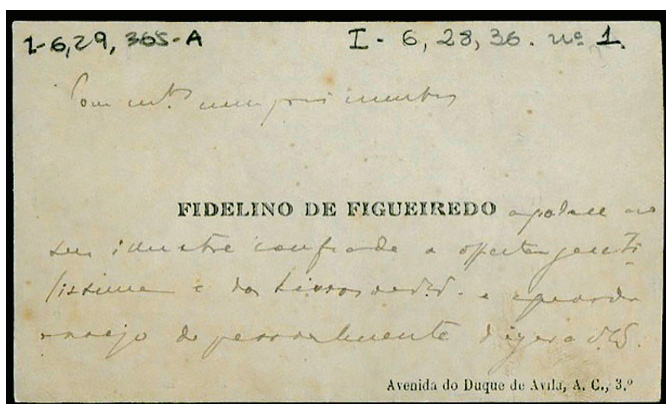 I-6,29, 365-A I - 6, 28, 36. nº 1.
Com mtos cumprimentos
FIDELINO DE FIGUEIREDO agradece ao
seu illustre confrade a offerta genti-
lissima e dos livros de V. e aguarda
ensejo de pessoalmente
Avenida do Duque de Avila, A. C., 3.º